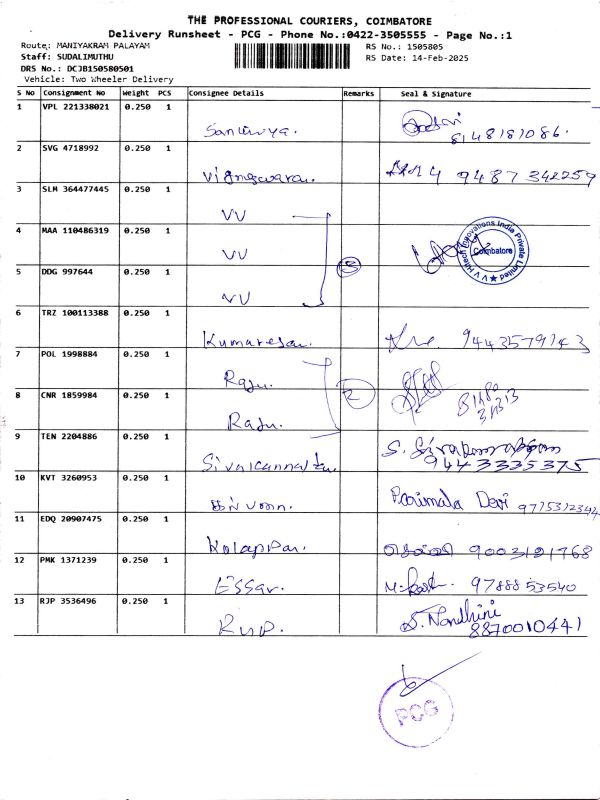 THE PROFESSIONAL COURIERS, COIMBATORE
Delivery Runsheet - PCG - Phone No.:0422-3505555 - Page No.:1
Route: MANIYAKRAM PALAYAM
RS No.: 1505805
Staff: SUDALIMUTHU
RS Date: 14-Feb-2025
DRS No.: DCJB150580501
Vehicle: Two Wheeler Delivery
S No Consignment No Weight PCS Consignee Details Remarks Seal & Signature
1 VPL 221338021 0.250 1
8148181086.
2 SVG 4718992 0.250 1
Vigneswaran. 9487342259
3 SLM 364477445 0.250 1
VV
4 MAA 110486319 0.250 1
VV 3
V V Hitech Innovations India Private Limited
Coimbatore
5 DDG 997644 0.250 1
VV
6 TRZ 100113388 0.250 1
Kumaresan. 9443579143
7 POL 1998884 0.250 1
Raju.
8 CNR 1859984 0.250 1
Raju. 2
9 TEN 2204886 0.250 1
9443335375
10 KVT 3260953 0.250 1
Parimala Devi
11 EDQ 20907475 0.250 1
Kolappan. 9003121768
12 PMK 1371239 0.250 1
Essar. 9788853540
13 RJP 3536496 0.250 1
S. Nandhini
8870010441
PCG